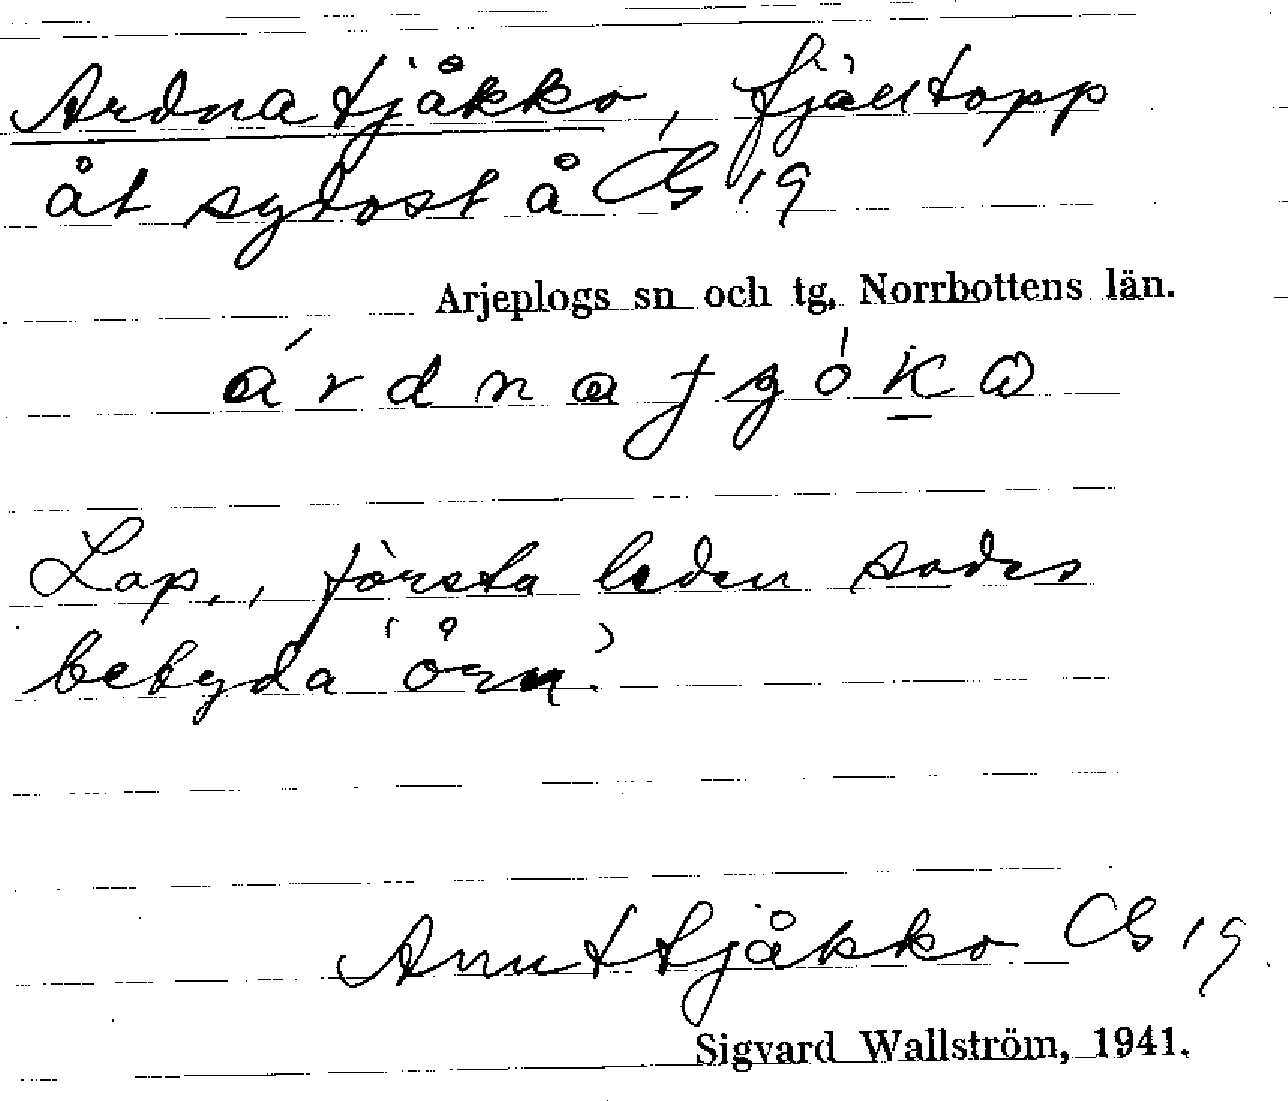 Ardnatjåkko, fjälltopp
åt sydost å CG 19
Arjeplogs sn och tg. Norrbottens län.
Lap., första leden sades
betyda 'örn'.
Anuttjåkko CG 19
Sigvard Wallström, 1941.